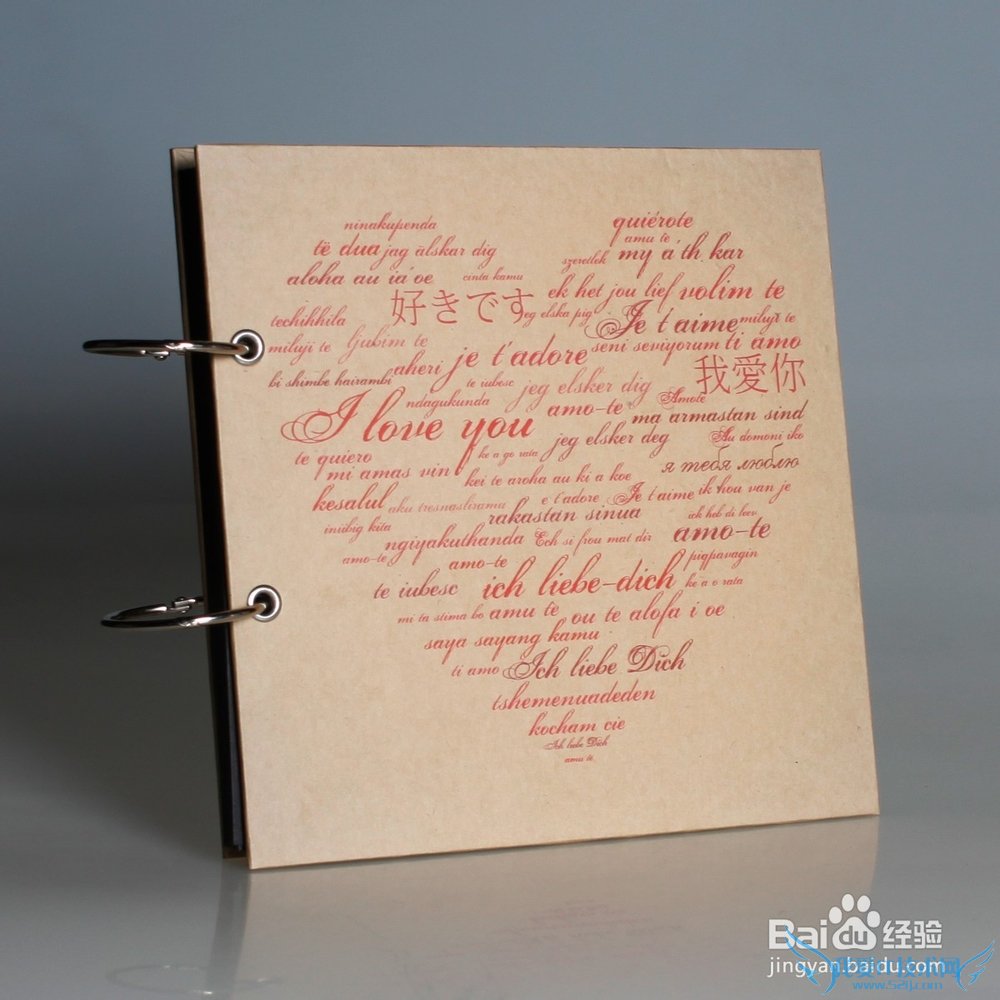 ninakupenda quiérote
të dua jag älskar dig amu te
szeretlek my á th kar
aloha au iá oe cinta kamu
ek het jou lief volim te
techihhila 好きです jeg elska pig Je t'aime miluji te
miluji te ljubim te aheri je t'adore seni seviyorum ti amo
bi shimbe hairambi te iubesc jeg elsker dig 我愛你
ndagukunda amo-te Amote
I love you ma armastan sind
te quiero ke a go rata jeg elsker deg Au domoni iko
mi amas vin kei te aroha au ki a koe я тебя люблю
kesalul aku tresnasliramu e t'adore Je t'aime ik hou van je
iniibig kita rakastan sinua ich heb di leev
ngiyakuthanda Ech si frou mat dir amo-te
amo-te amo-te piqpavagin
te iubesc ich liebe-dich ke a o rata
mi ta stima bo amu te ou te alofa i oe
saya sayang kamu
ti amo Ich liebe Dich
tshemenuadeden
kocham cie
Ich liebe Dich
amu te
Baidu经验
jingyan.baidu.com
www.52ij.com